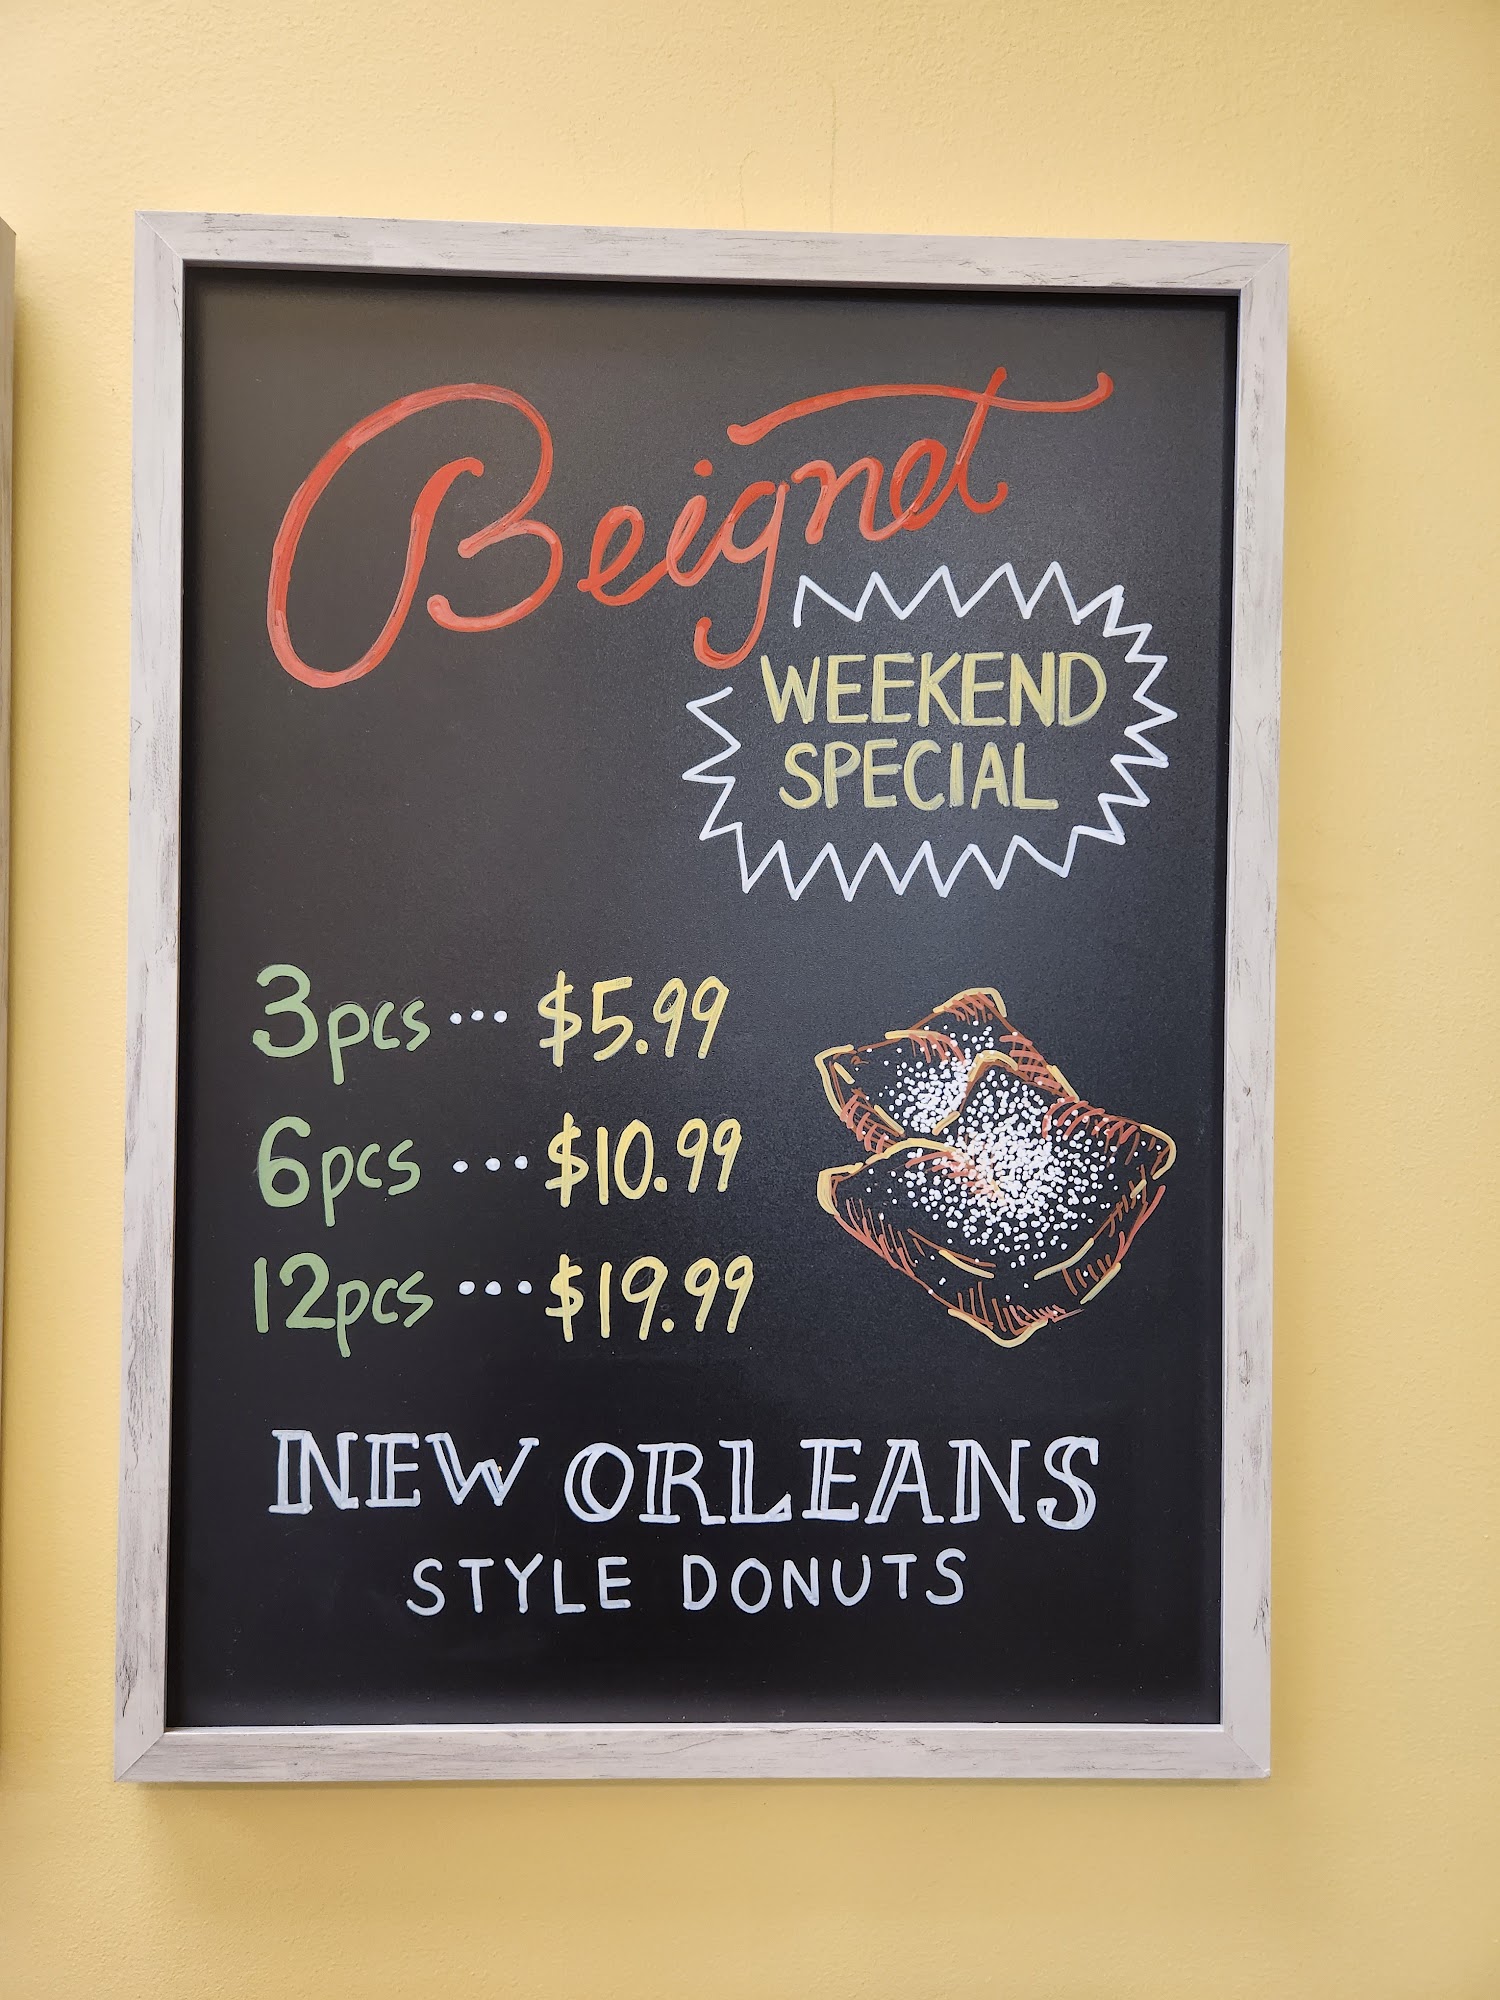 Beignet
WEEKEND
SPECIAL
3pcs ... $5.99
6pcs ... $10.99
12pcs ... $19.99
NEW ORLEANS
STYLE DONUTS